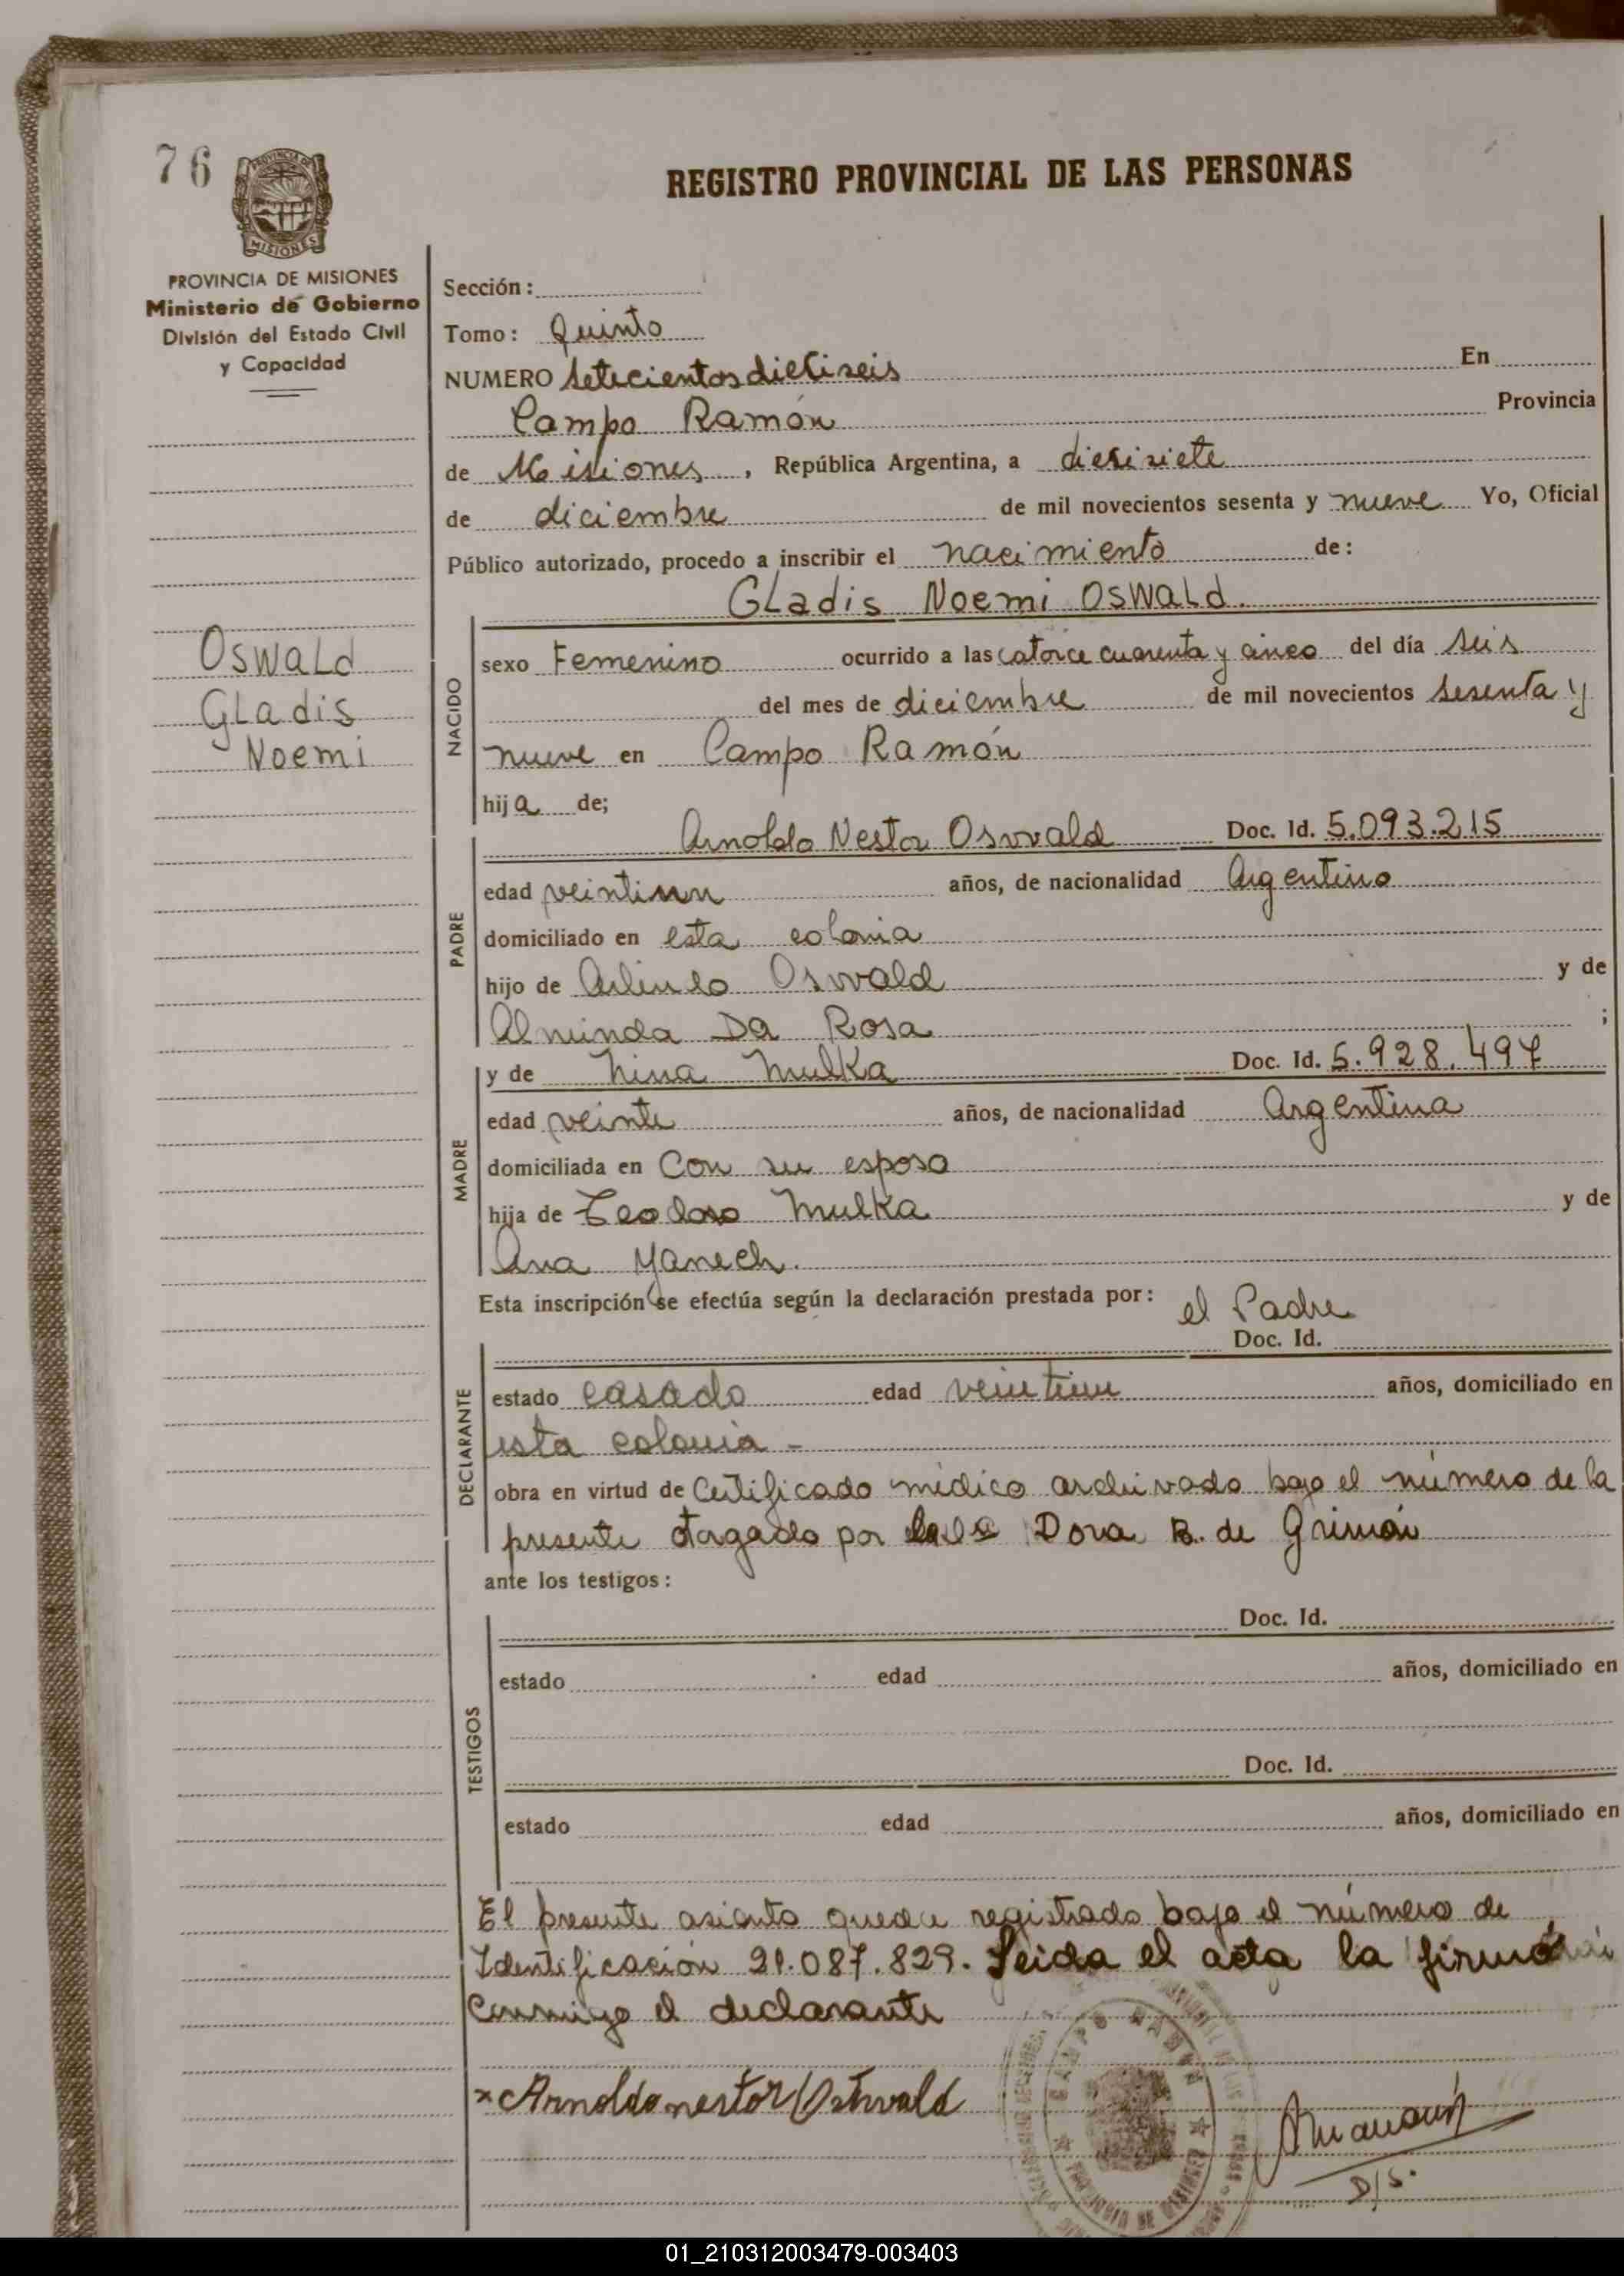 76
PROVINCIA DE MISIONES
MISIONES
REGISTRO PROVINCIAL DE LAS PERSONAS
PROVINCIA DE MISIONES
Ministerio de Gobierno
División del Estado Civil
y Capacidad
Sección:
Tomo: Quinto
NUMERO Setecientos dieciseis En
Campo Ramón Provincia
de Misiones, República Argentina, a diesisiete
de diciembre de mil novecientos sesenta y nueve Yo, Oficial
Público autorizado, procedo a inscribir el nacimiento de:
GLadis Noemi OSWALd.
OSWALd
GLadis
Noemi
NACIDO
sexo Femenino ocurrido a las catorce cuarenta y cinco del día seis
del mes de diciembre de mil novecientos sesenta y
nueve en Campo Ramón
hija de;
PADRE
Arnoldo Nestor Oswald Doc. Id. 5.093.215
edad veintiun años, de nacionalidad Argentino
domiciliado en esta colonia
hijo de Arlindo Oswald y de
Alminda Da Rosa ;
MADRE
y de Nina Mulka Doc. Id. 5.928.497
edad veinte años, de nacionalidad Argentina
domiciliada en Con su esposo
hija de Teodoro Mulka y de
Ana Yanech.
Esta inscripción se efectúa según la declaración prestada por: el Padre
DECLARANTE
Doc. Id.
estado casado edad veintiun años, domiciliado en
esta colonia -
obra en virtud de Certificado médico archivado bajo el número de la
presente otorgado por Dora B. de Grimón
ante los testigos:
TESTIGOS
Doc. Id.
estado edad años, domiciliado en
Doc. Id.
estado edad años, domiciliado en
El presente asiento queda registrado bajo el número de
Identificación 21.087.829. Leida el acta la firmó
Conmigo el declarante
x Arnoldo nestor Oswald
CAMPO RAMON
PROVINCIA DE MISIONES
D/S.
01_210312003479-003403